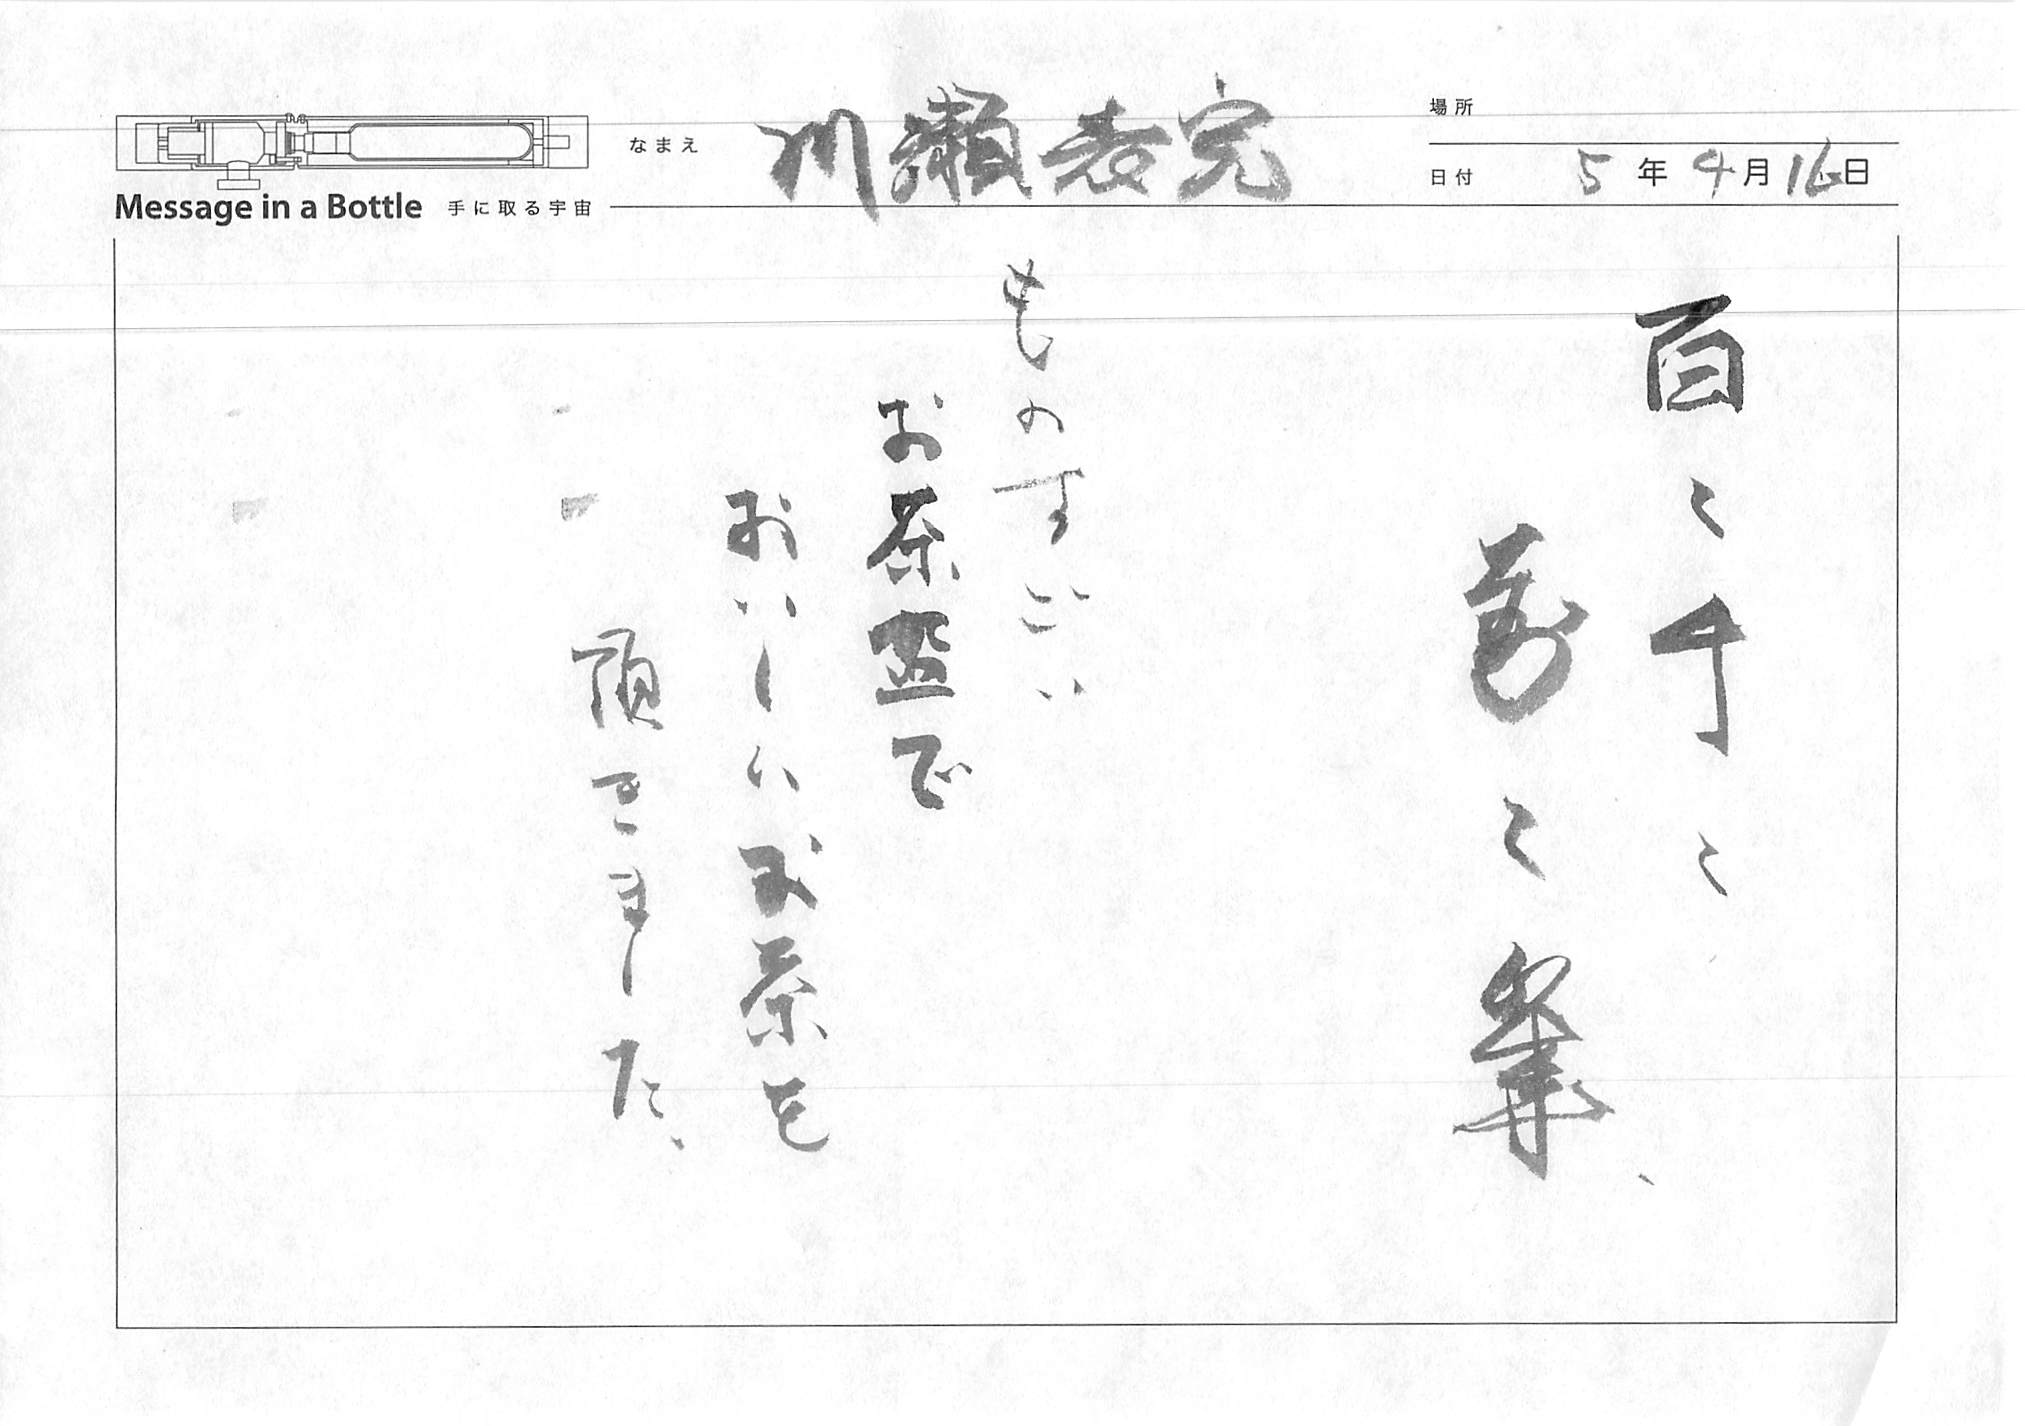 Message in a Bottle 手に取る宇宙
なまえ 川瀬表完
場所
日付 5年4月16日
百々千々
萬々峯、
ものすごい
お茶盌で
おいしいお茶を
頂きました、